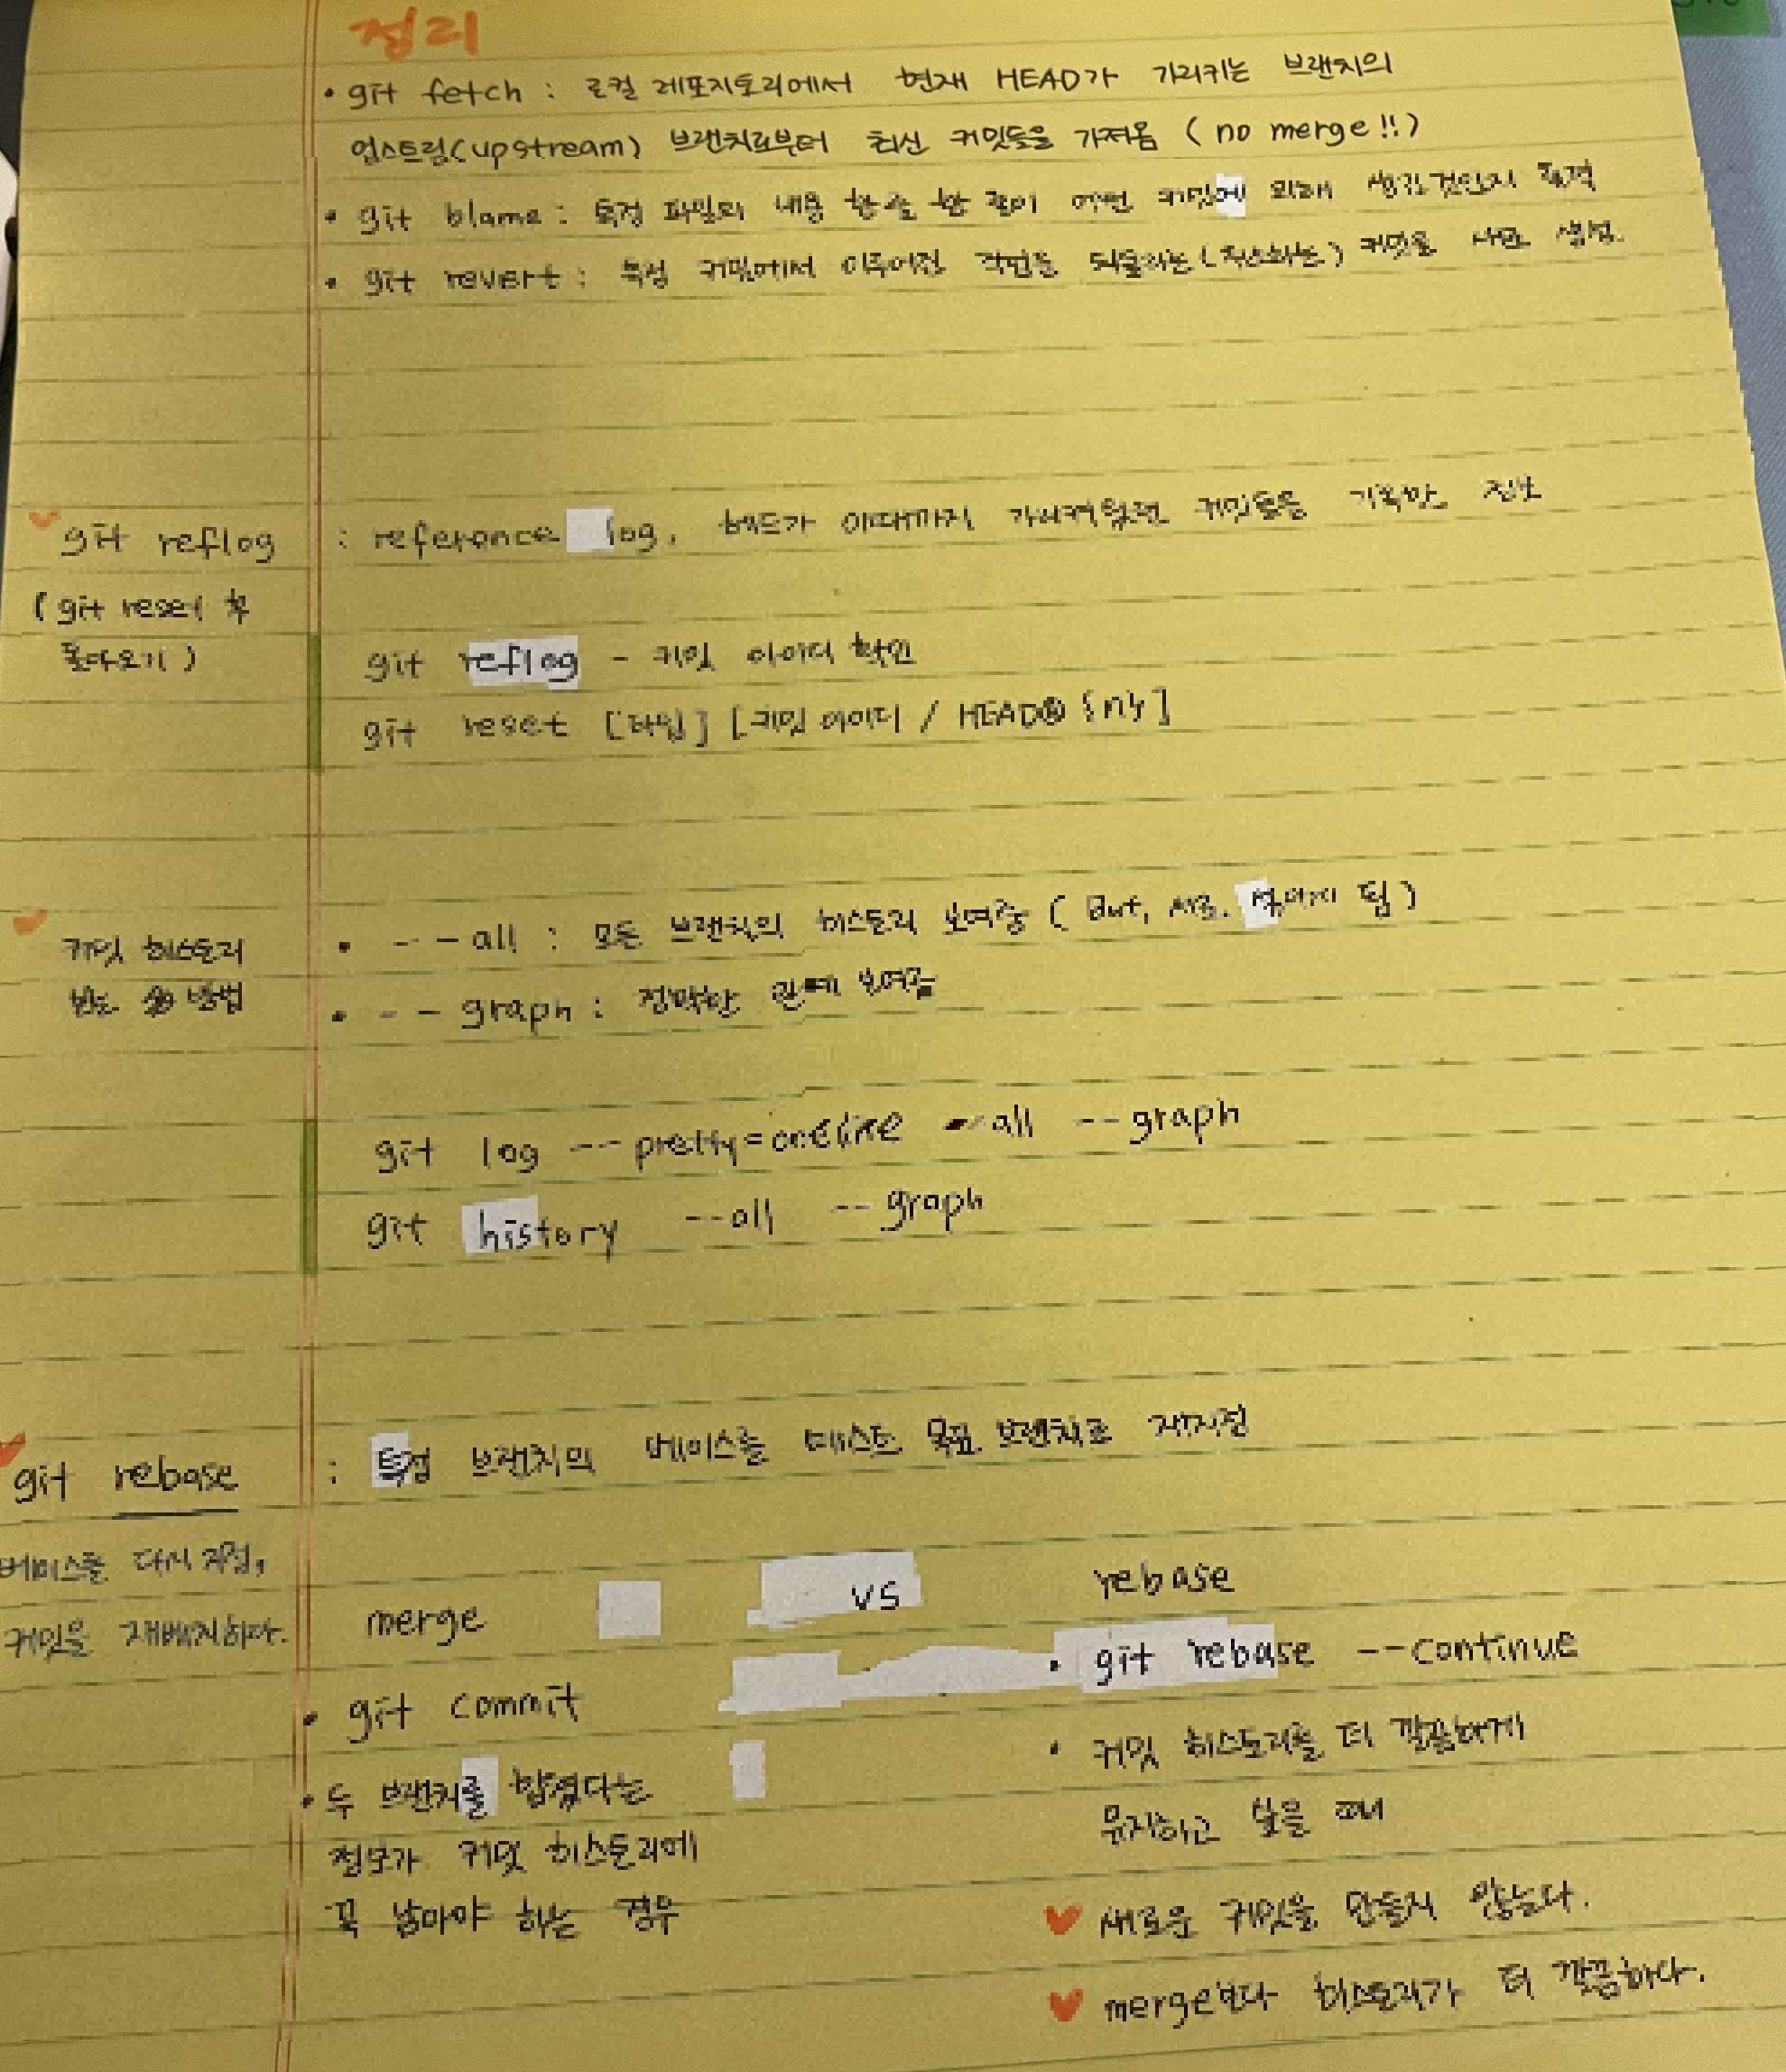 정리
• git fetch : 로컬 레포지토리에서 현재 HEAD가 가리키는 브랜치의
업스트림(upstream) 브랜치로부터 최신 커밋들을 가져옴 (no merge!!)
• git blame : 특정 파일의 내용 한 줄 한 줄이 어떤 커밋에 의해 생긴 것인지 추적
• git revert : 특정 커밋에서 이루어진 작업을 되돌리는(취소하는) 커밋을 새로 생성.
git reflog : reference log, 헤드가 이때까지 가리켜왔던 커밋들을 기록한 정보
(git reset 후
돌아오기)
git reflog - 커밋 아이디 확인
git reset [타입] [커밋 아이디 / HEAD@{n}]
커밋 히스토리
보는 방법
• --all : 모든 브랜치의 히스토리 보여줌 (But, 서로 섞이게 됨)
• --graph : 정확한 관계 보여줌
git log --pretty=oneline --all --graph
git history --all --graph
git rebase : 특정 브랜치의 베이스를 목표 브랜치로 재지정
베이스를 다시 지정,
커밋을 재배치하다.
merge vs rebase
• git commit
• git rebase --continue
• 두 브랜치를 합쳤다는
정보가 커밋 히스토리에
꼭 남아야 하는 경우
• 커밋 히스토리를 더 깔끔하게
유지하고 싶을 때
새로운 커밋을 만들지 않는다.
merge보다 히스토리가 더 깔끔하다.